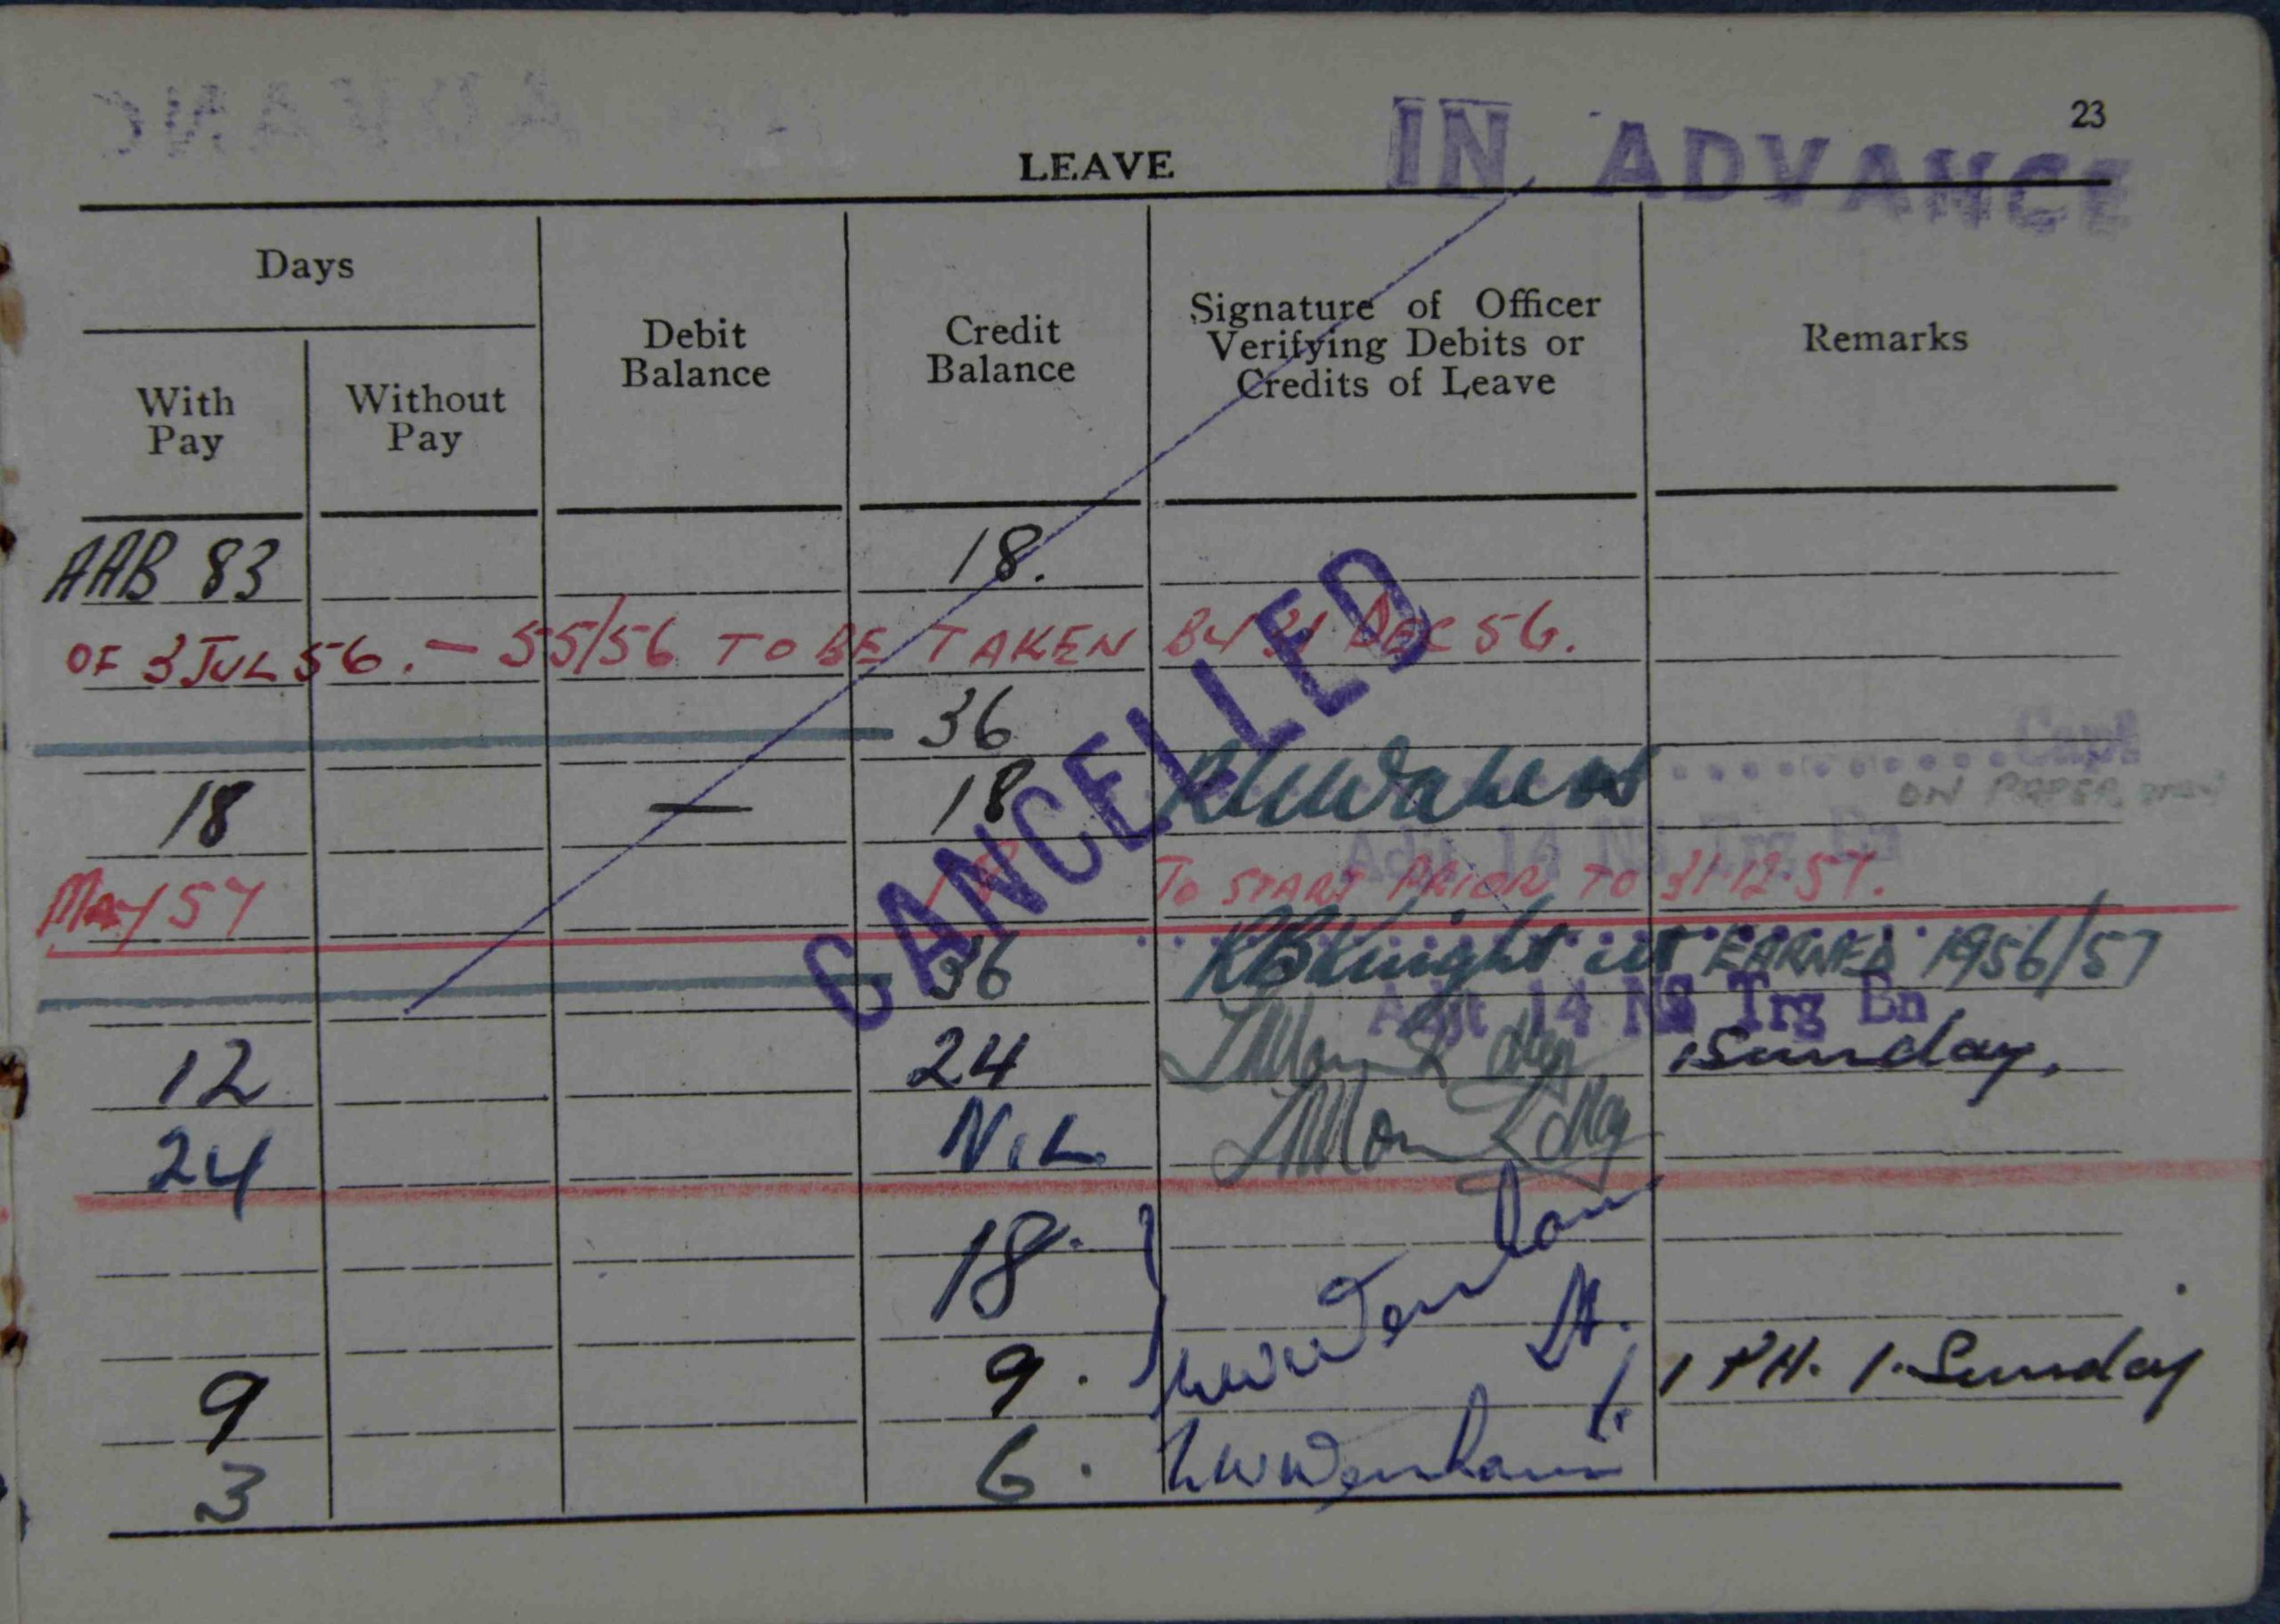 23
IN ADVANCE
LEAVE
Days
With Pay
Without Pay
Debit Balance
Credit Balance
Signature of Officer
Verifying Debits or
Credits of Leave
Remarks
AAB 83 18.
OF 3 JUL 56. — 55/56 TO BE TAKEN BY 31 DEC 56.
36
Capt
18 — 18
ON PAPER
Adjt 14 NS Trg Bn
MAY 57 18 TO START PRIOR TO 31-12-57.
CANCELLED
36 RBKnight Lt EARNED 1956/57
Adjt 14 NS Trg Bn
12 24 1 Sunday.
24 NIL
18.
Lt.
9 9. 1 PH. 1. Sunday
3 6.